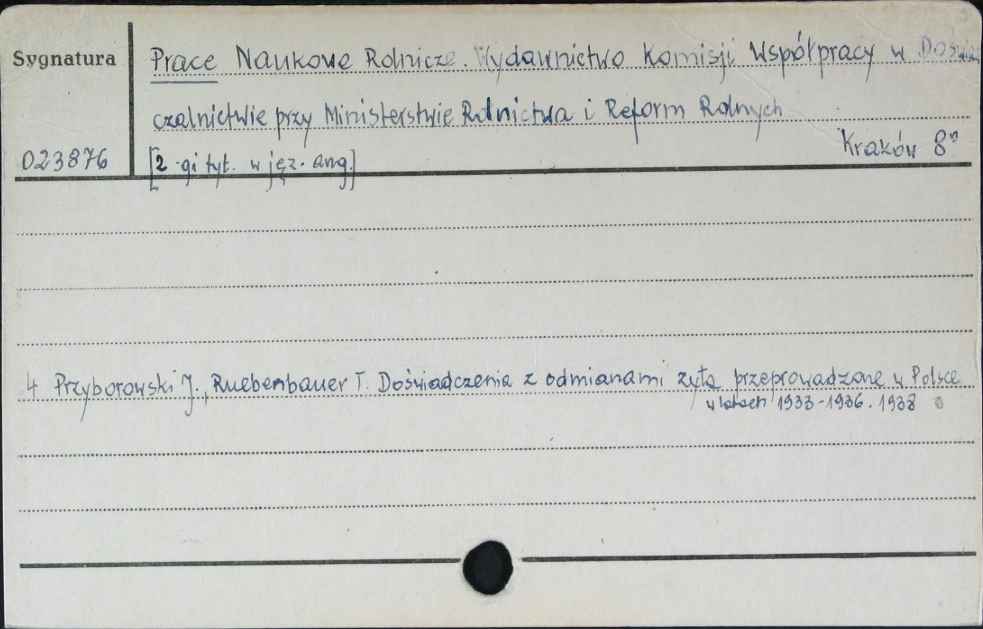 Sygnatura
Prace Naukowe Rolnicze. Wydawnictwo Komisji Współpracy w Doświad
czalnictwie przy Ministerstwie Rolnictwa i Reform Rolnych
023876
[2-gi tyt. w jęz. ang.]
Kraków 8°
4 Przyborowski J., Ruebenbauer T. Doświadczenia z odmianami żyta przeprowadzone w Polsce
w latach 1933-1936. 1938